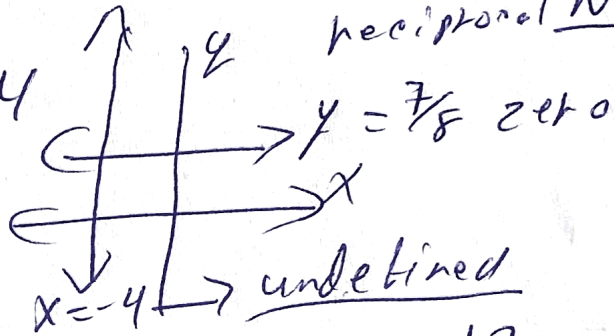 reciprocal N
y
4
y = 7/8 zero
x
x=-4 undefined